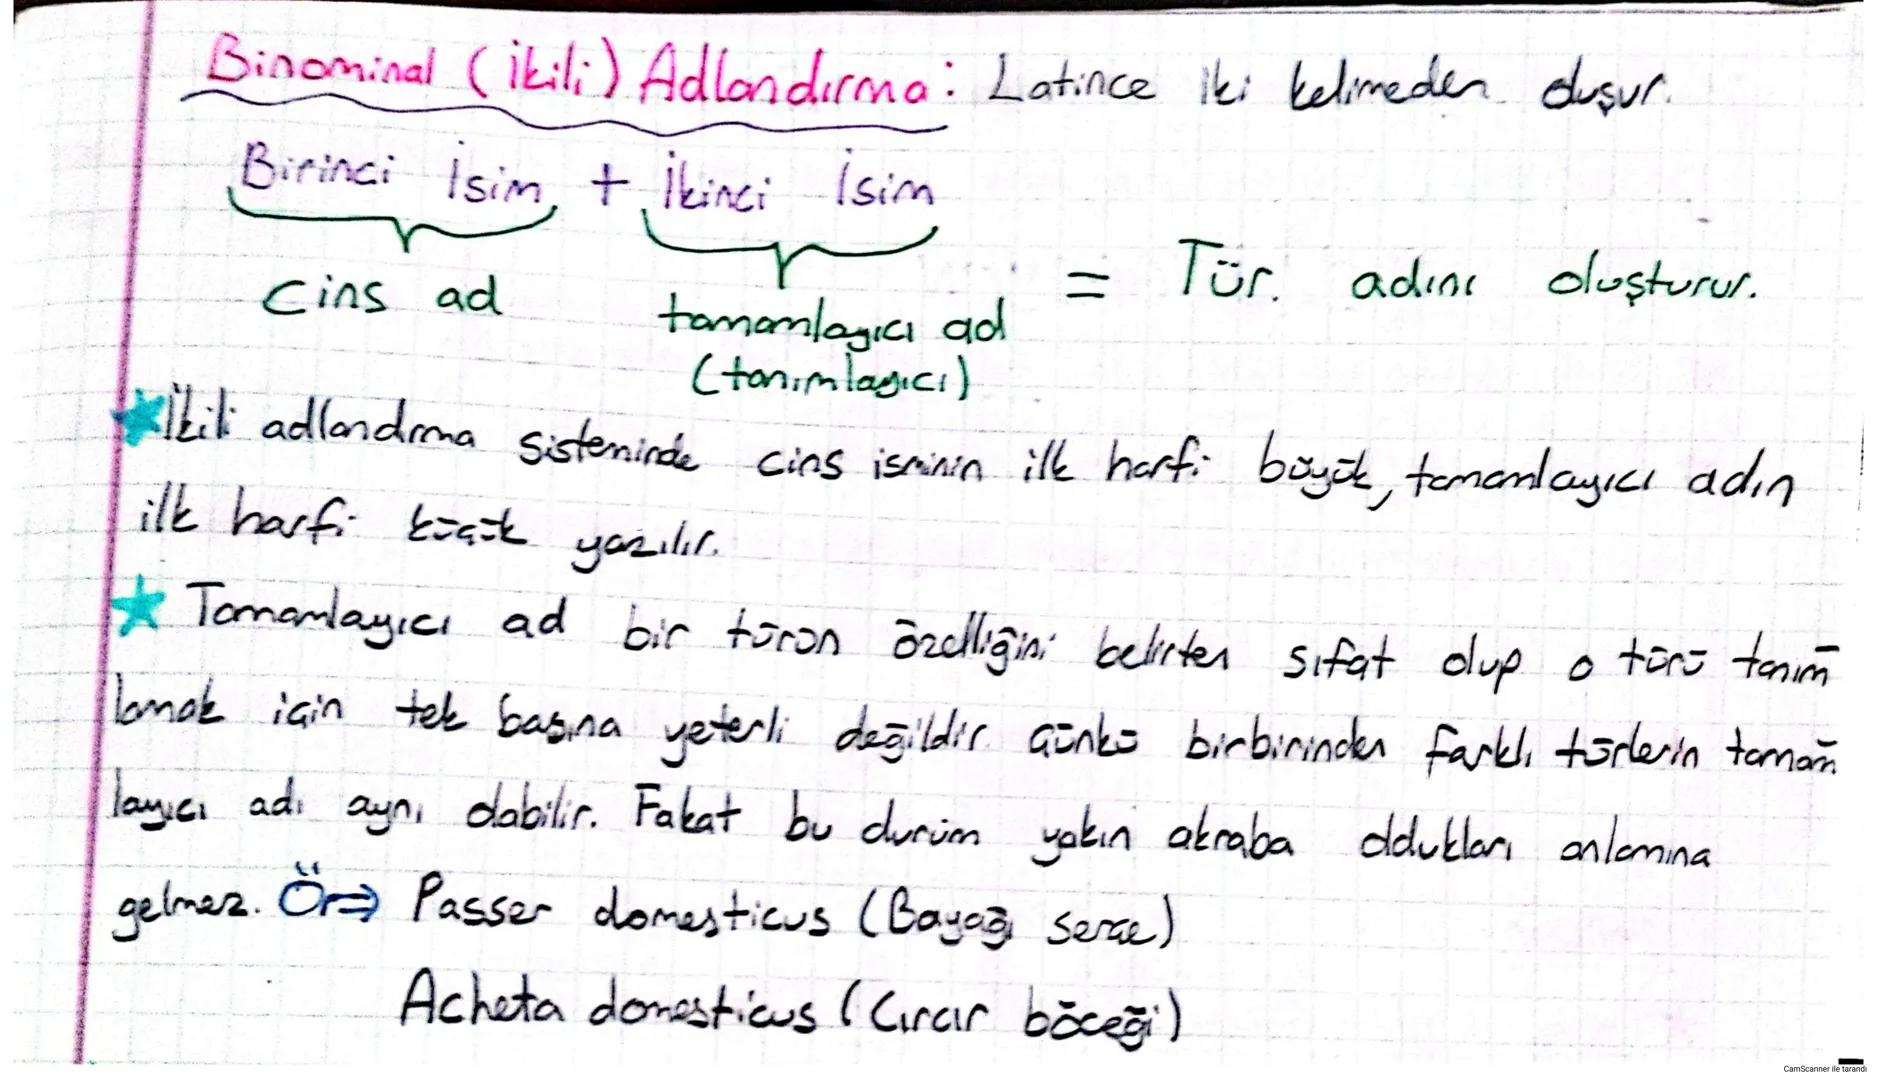 Binominal (İkili) Adlandırma: Latince iki kelimeden oluşur.
Birinci İsim + İkinci İsim
Cins ad
tamamlayıcı ad
(tanımlayıcı)
= Tür. adını oluşturur.
İkili adlandırma sisteminde cins isminin ilk harfi büyük, tamamlayıcı adın
ilk harfi küçük yazılır.
Tamamlayıcı ad bir türün özelliğini belirten sıfat olup o türü tanım
lamak için tek başına yeterli değildir çünkü birbirinden farklı türlerin tamam
layıcı adı aynı olabilir. Fakat bu durum yakın akraba oldukları anlamına
gelmez. Ör⇒ Passer domesticus (Bayağı serçe)
Acheta domesticus (Cırcır böceği)
CamScanner ile tarandı